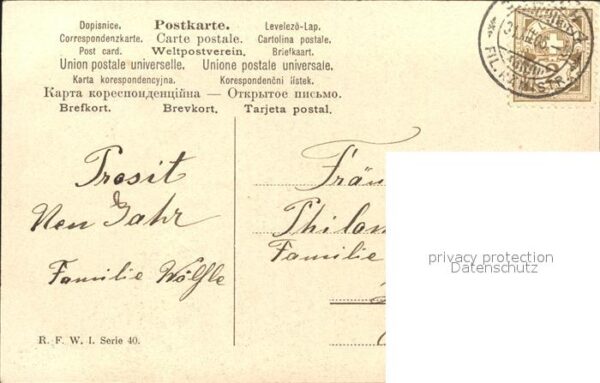 Dopisnice. Postkarte. Levelező-Lap.
Correspondenzkarte. Carte postale. Cartolina postale.
Post card. Weltpostverein. Briefkaart.
Union postale universelle. Unione postale universale.
Karta korespondencyjna. Korespondenční lístek.
Карта кореспонденційна — Открытое письмо.
Brefkort. Brevkort. Tarjeta postal.
Prosit
Neu Jahr
Familie Wölfle
R. F. W. I. Serie 40.
Fräu
Philom
Familie
privacy protection
Datenschutz